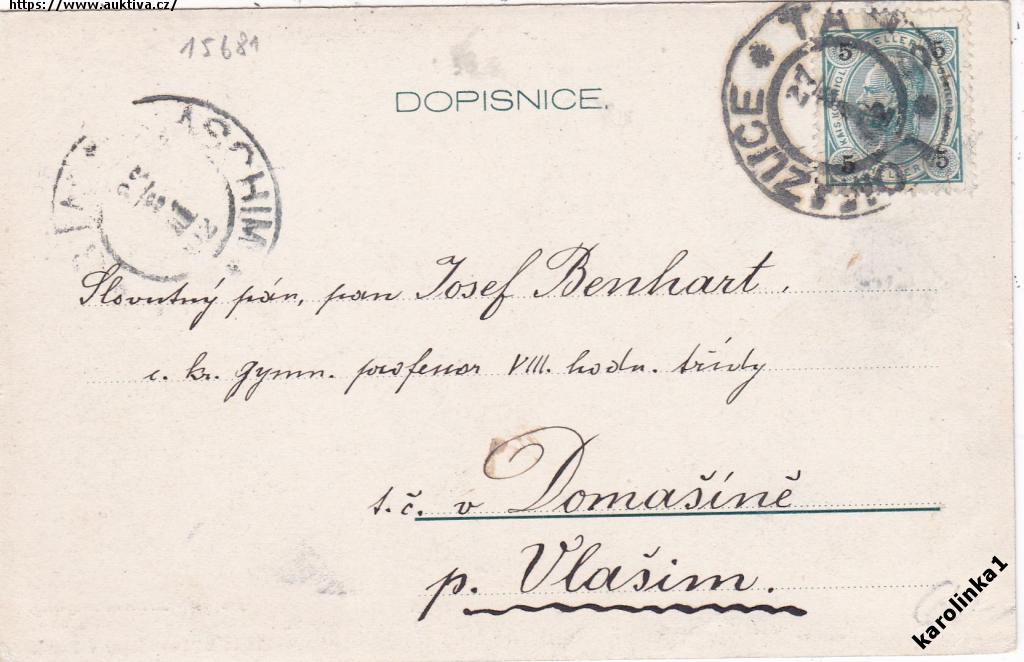 https://www.auktiva.cz/
15681
DOPISNICE.
5 5
5 5
ASCHIM
Slovutný pán, pan Josef Benhart.
c. kr. gymn. professor VIII. hodn. třídy
t.č. v Domašíně
p. Vlašim.
karolinka1